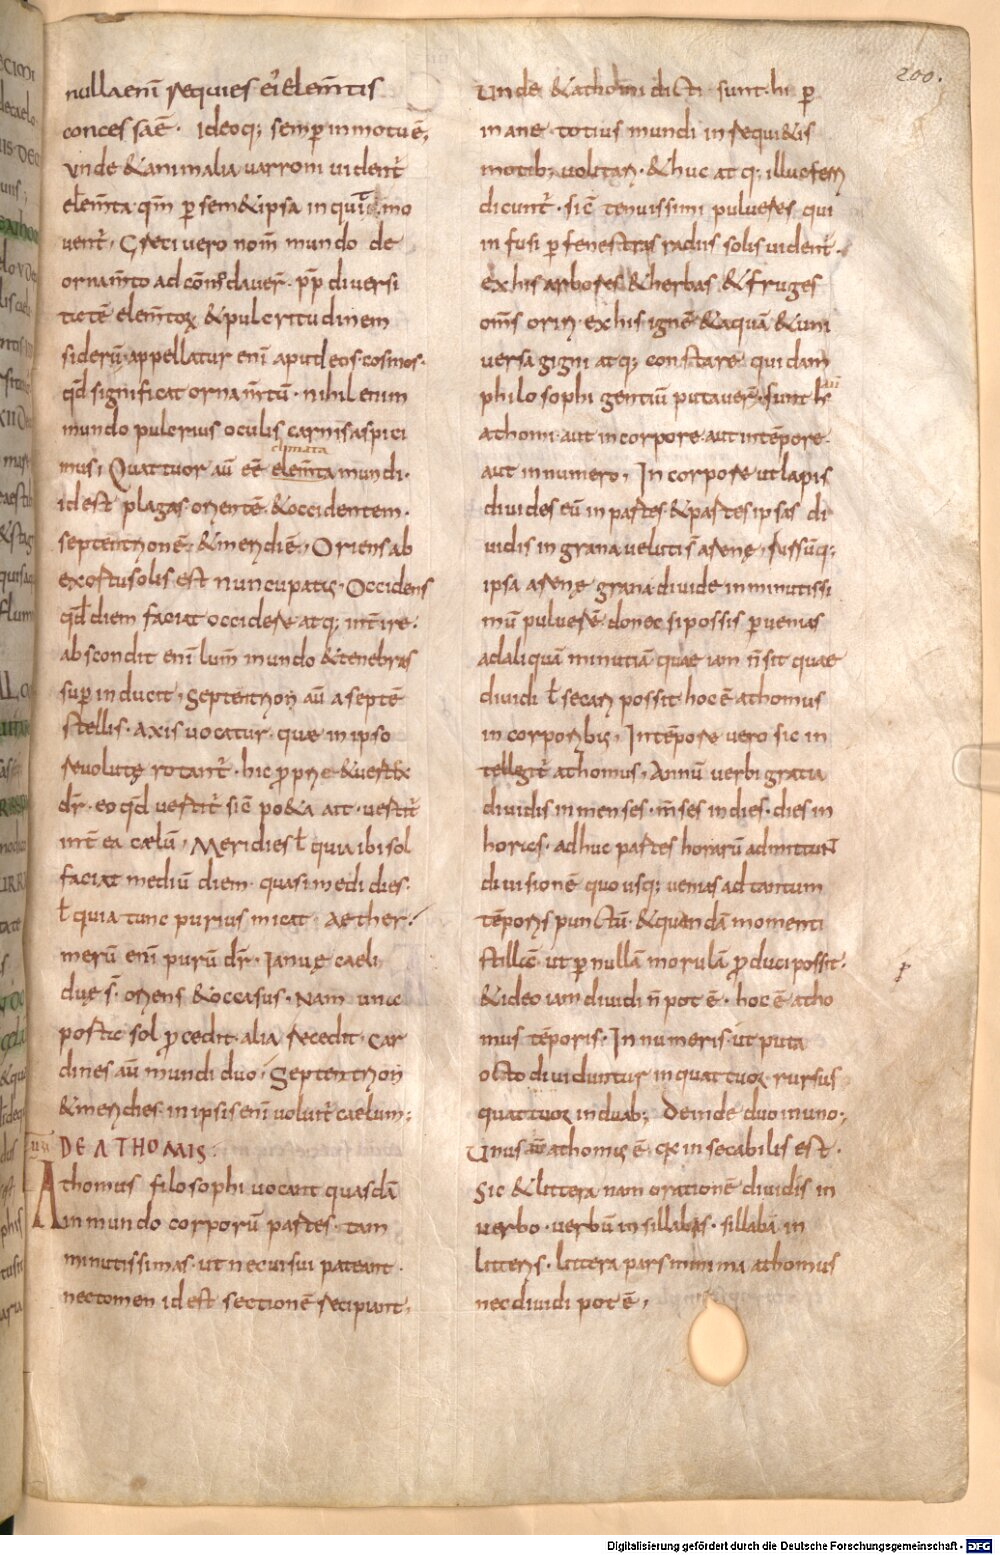 200.
nulla enī requies ei elem̄tis
concessa ē. Ideoq; semp in motu ē,
vnde & animalia varroni vident̄
elem̄ta qm̄ p sem&ipsa inquit mo
uent̄, Greci vero nom̄ mundo de
ornam̄to adcōmodauer̄. pp̄ diuersi
tatē elem̄toꝝ & pulcritudinem
siderū. appellatur enī aput eos cosmos.
qd̄ significat ornam̄tū. nihil enim
mundo pulcrius oculis carnis aspici
climata
mus; Quattuor aū eē elem̄ta mundi.
id est plagas. orientē. & occidentem.
septentrionē. & meridiē, Oriens ab
exortu solis est nuncupatus. Occidens
qd̄ diem faciat occidere atq; int̄ire.
abscondit enī lum̄ mundo & tenebras
sup inducit, Septentrion aū a septē
stellis. axis uocatur. quae in ipso
reuolutę rotant̄. hic ꝓprie & uertex
dr̄. eo qd̄ uertit̄ sic̄ po&a ait. uertit̄
int̄ ea cælū, Meridies ł quia ibi sol
faciat mediū diem. quasi medidies.
ł quia tunc purius micat. aether.
merū enī purū dr̄. Ianuę caeli
duę s̄. oriens & occasus. Nam una
porta sol ꝓcedit. alia recedit. Car
dines aū mundi duo, Septentrion
& meridies. in ipsis enī voluit̄ caelum;
DE ATHOMIS.
Athomus filosophi uocant quasdā
in mundo corporū partes. tam
minutissimas. ut nec uisui pateant.
nec tomen id est sectionē recipiant,
Unde & athomi dicti sunt. hi p
inane totius mundi inrequi&is
motib; uolitar̄. & huc atq; illuc ferri
dicunt̄. sic̄ tenuissimi pulueres qui
infusi p fenestras radiis solis uident̄.
ex his arbores & herbas & fruges
om̄s oriri. ex his ignē & aquā & uni
uersa gigni atq; constare quidam
philosophi gentiū putauer̄. sunt h
athomi aut in corpore aut in tēpore.
aut in numero, In corpore ut lapis
diuides eū in partes. & partes ipsas di
uidis in grana ueluti s̄ arenę, rursūq;
ipsa arenę grana diuide in minutissi
mū puluerē. donec si possis puenias
ad aliquā minutiā quae iam n̄ sit quae
diuidi ł secari possit. hoc ē athomus
in corporibus, In tēpore vero sic in
tellegit̄ athomus, Annū verbi gratia
diuidis in menses. m̄ses in dies. dies in
horas. adhuc partes horarū admittunt
diuisionē quousq; uenias ad tantum
tēporis punctū. & quandā momenti
stillā. ut p nullā morulā ꝓduci possit.
& ideo iam diuidi n̄ pot ē. hoc ē atho
mus tēporis. In numeris. ut puta
octo diuiduntur in quattuor. rursus
quattuor in duab; Deinde duo in uno;
Unus aū athomus ē. qa insecabilis est.
Sic & littera nam orationē diuidis in
verbo. verbū in sillabas. sillabā in
litteris. littera pars minima athomus
nec diuidi pot ē,
Digitalisierung gefördert durch die Deutsche Forschungsgemeinschaft - DFG